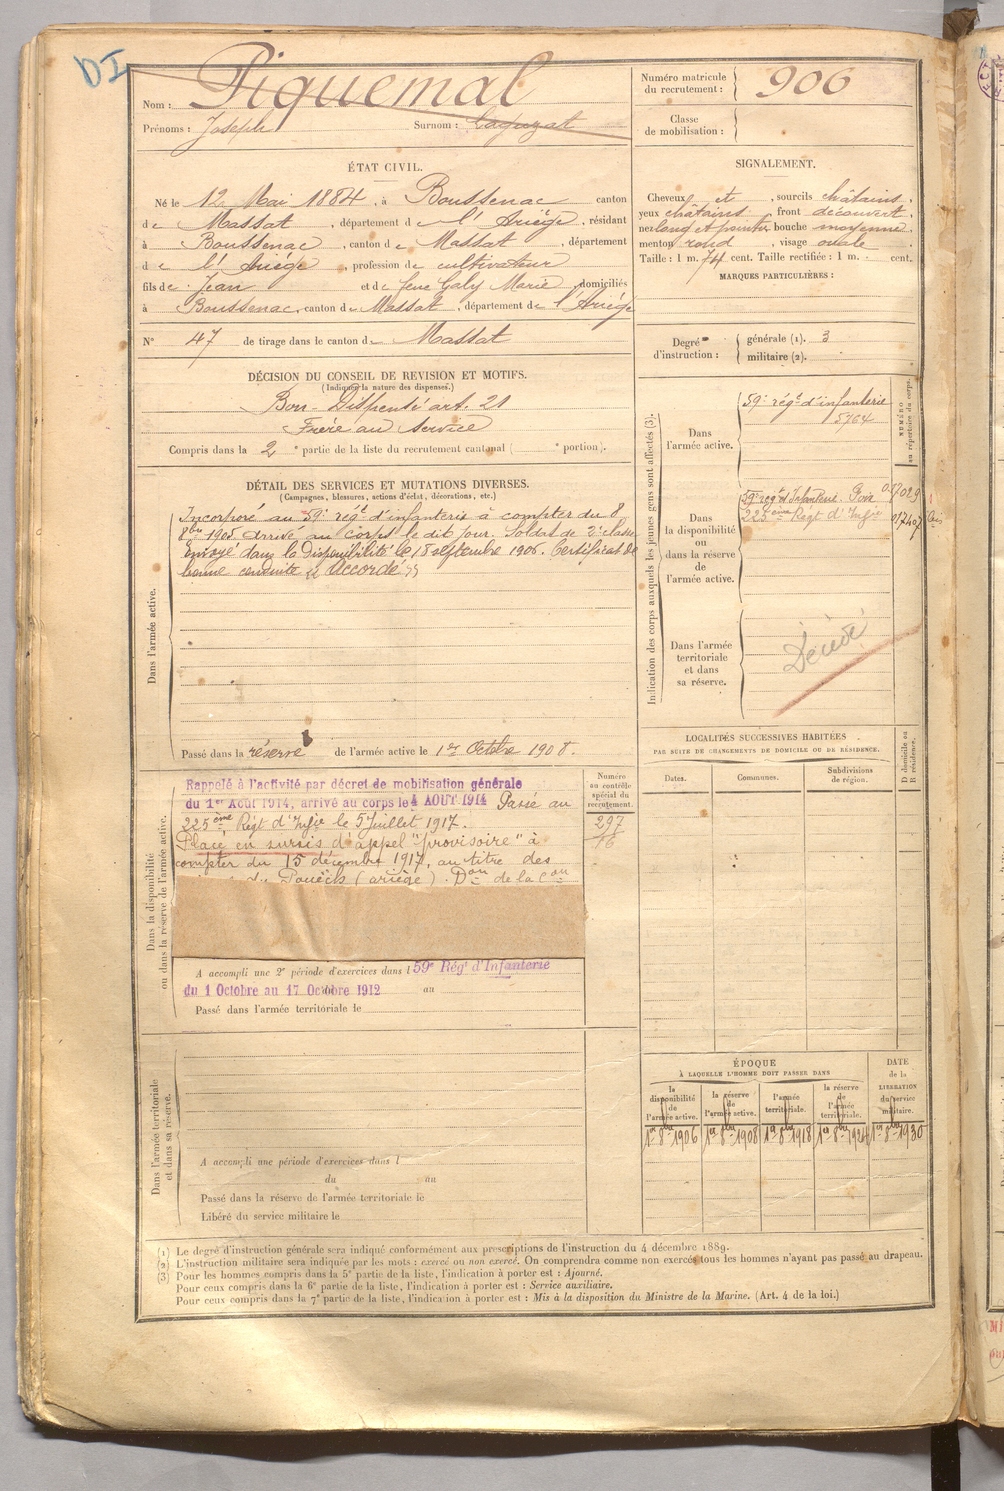 DI
Nom : Piquemal
Prénoms : Joseph Surnom : Caguzat
Numéro matricule du recrutement : 906
Classe de mobilisation :
ÉTAT CIVIL.
Né le 12 Mai 1884, à Boussenac canton
de Massat, département de l'Ariège, résidant
à Boussenac, canton de Massat, département
de l'Ariège, profession de cultivateur
fils de Jean et de feue Galy Marie, domiciliés
à Boussenac, canton de Massat, département de l'Ariège
N° 47 de tirage dans le canton de Massat
SIGNALEMENT.
Cheveux et , sourcils châtains,
yeux châtains, front découvert,
nez long et pointu, bouche moyenne,
menton rond, visage ovale
Taille : 1 m. 74 cent. Taille rectifiée : 1 m. cent.
MARQUES PARTICULIÈRES :
Degré d'instruction : générale (1). 3
militaire (2).
DÉCISION DU CONSEIL DE REVISION ET MOTIFS.
(Indiquer la nature des dispenses.)
Bon - Dispensé art. 21
Frère au Service
Compris dans la 2e partie de la liste du recrutement cantonal ( e portion).
DÉTAIL DES SERVICES ET MUTATIONS DIVERSES.
(Campagnes, blessures, actions d'éclat, décorations, etc.)
Dans l'armée active.
Incorporé au 59e régt d'infanterie à compter du 8
8bre 1905 arrivé au corps le dit jour. Soldat de 2e classe
Envoyé dans la Disponibilité le 18 septembre 1906. Certificat de
bonne conduite "Accordé"
Passé dans la réserve de l'armée active le 1er Octobre 1908.
Indication des corps auxquels les jeunes gens sont affectés (3).
NUMÉRO au répertoire du corps.
Dans l'armée active.
59e régt d'infanterie
5764
Dans la disponibilité ou dans la réserve de l'armée active.
59e régt d'Infanterie. Foix 017029
225ème Régt d'Infie 017407 bis
Dans l'armée territoriale et dans sa réserve.
Décédé
LOCALITÉS SUCCESSIVES HABITÉES
PAR SUITE DE CHANGEMENTS DE DOMICILE OU DE RÉSIDENCE.
Dates. Communes. Subdivisions de région. D domicile ou R résidence.
Dans la disponibilité ou dans la réserve de l'armée active.
Numéro au contrôle spécial du recrutement.
297
16
Rappelé à l'activité par décret de mobilisation générale
du 1er Août 1914, arrivé au corps le 4 AOUT 1914 Passé au
225ème Régt d'Infie le 5 Juillet 1917.
Placé en sursis d'appel "provisoire" à
compter du 15 décembre 1917, au titre des
de Pouech (ariège). Don de la Con
A accompli une 2e période d'exercices dans l 59e Régt d'Infanterie
du 1 Octobre au 17 Octobre 1912 au
Passé dans l'armée territoriale le
Dans l'armée territoriale et dans sa réserve.
A accompli une période d'exercices dans l
du au
Passé dans la réserve de l'armée territoriale le
Libéré du service militaire le
ÉPOQUE
À LAQUELLE L'HOMME DOIT PASSER DANS
la disponibilité de l'armée active. la réserve de l'armée active. l'armée territoriale. la réserve de l'armée territoriale. DATE de la LIBÉRATION du service militaire.
1er 8bre 1906 1er 8bre 1908 1er 8bre 1918 1er 8bre 1924 1er 8bre 1930
(1) Le degré d'instruction générale sera indiqué conformément aux prescriptions de l'instruction du 4 décembre 1889.
(2) L'instruction militaire sera indiquée par les mots : exercé ou non exercé. On comprendra comme non exercés tous les hommes n'ayant pas passé au drapeau.
(3) Pour les hommes compris dans la 5e partie de la liste, l'indication à porter est : Ajourné.
Pour ceux compris dans la 6e partie de la liste, l'indication à porter est : Service auxiliaire.
Pour ceux compris dans la 7e partie de la liste, l'indication à porter est : Mis à la disposition du Ministre de la Marine. (Art. 4 de la loi.)